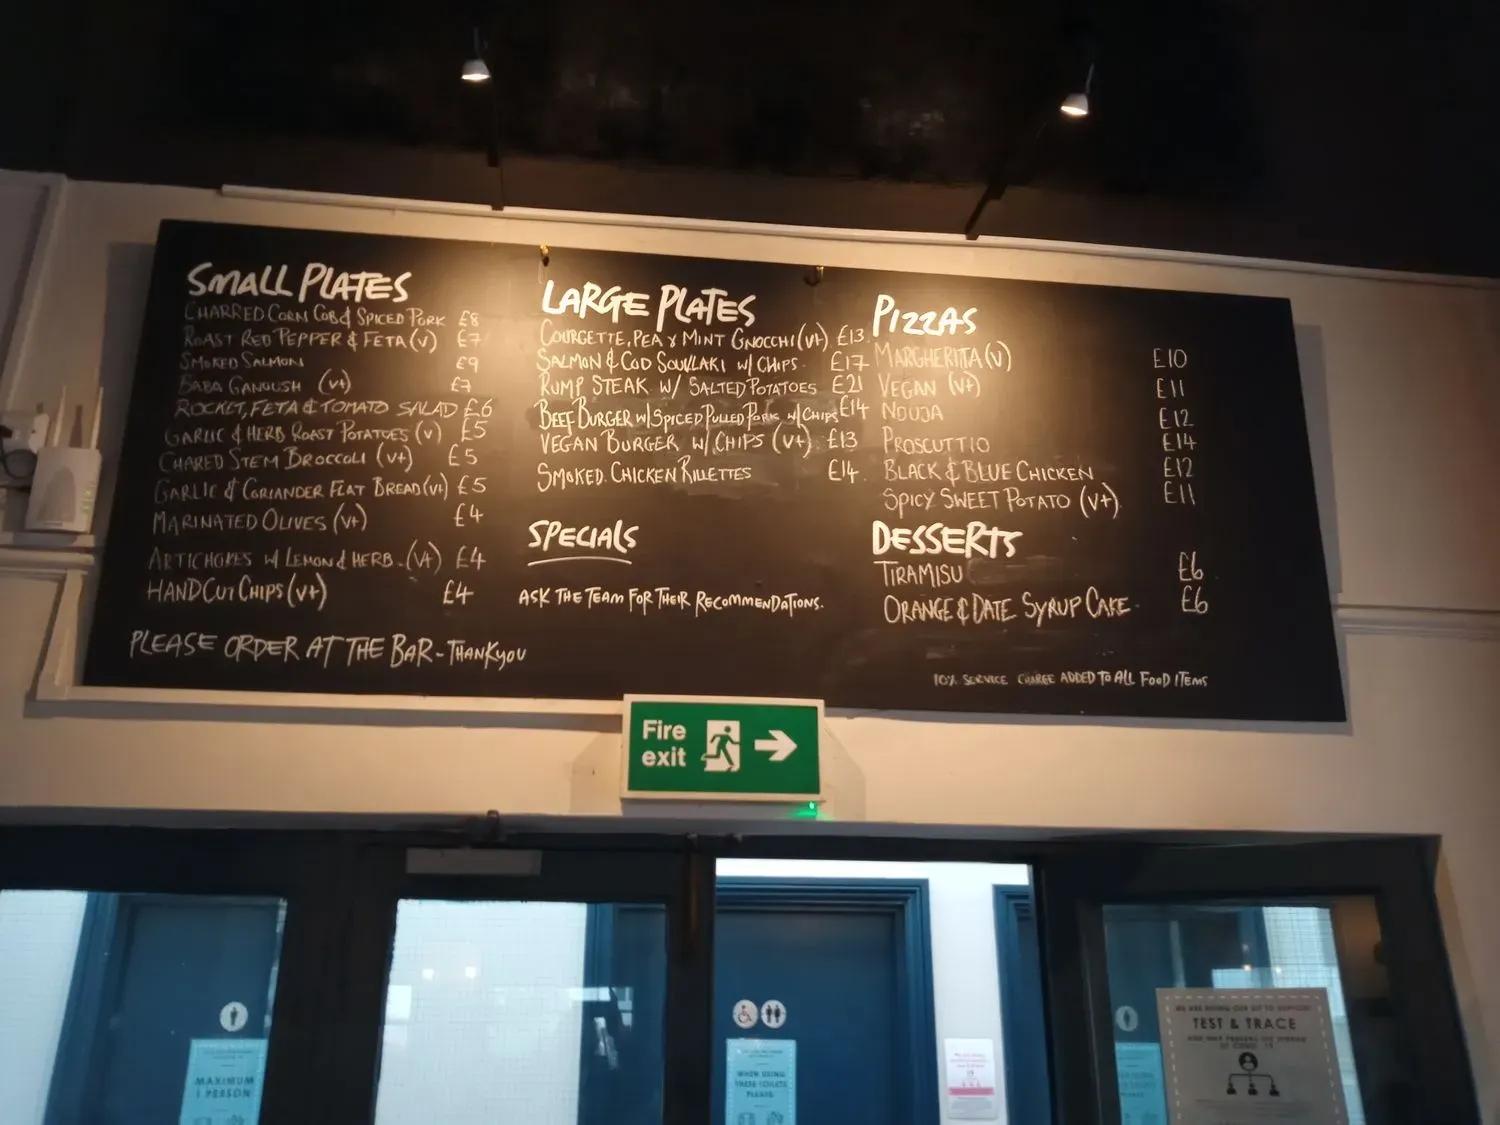 SMALL PLATES
CHARRED CORN COB & SPICED PORK £8
ROAST RED PEPPER & FETA (V) £7
SMOKED SALMON £9
BABA GANOUSH (V+) £7
ROCKET, FETA & TOMATO SALAD £6
GARLIC & HERB ROAST POTATOES (V) £5
CHARED STEM BROCCOLI (V+) £5
GARLIC & CORIANDER FLAT BREAD (V+) £5
MARINATED OLIVES (V+) £4
ARTICHOKES W/ LEMON & HERB. (V+) £4
HAND CUT CHIPS (V+) £4
PLEASE ORDER AT THE BAR - THANKYOU
LARGE PLATES
COURGETTE, PEA & MINT GNOCCHI (V+) £13
SALMON & COD SOUVLAKI W/ CHIPS. £17
RUMP STEAK W/ SALTED POTATOES £21
BEEF BURGER W/ SPICED PULLED PORK W/ CHIPS £14
VEGAN BURGER W/ CHIPS (V+) £13
SMOKED CHICKEN RILLETTES £14
SPECIALS
ASK THE TEAM FOR THEIR RECOMMENDATIONS.
PIZZAS
MARGHERITA (V) £10
VEGAN (V+) £11
NDUJA £12
PROSCUTTIO £14
BLACK & BLUE CHICKEN £12
SPICY SWEET POTATO (V+) £11
DESSERTS
TIRAMISU £6
ORANGE & DATE SYRUP CAKE £6
10% SERVICE CHARGE ADDED TO ALL FOOD ITEMS
Fire
exit
MAXIMUM
1 PERSON
WHEN USING
THESE TOILETS
PLEASE
TEST & TRACE